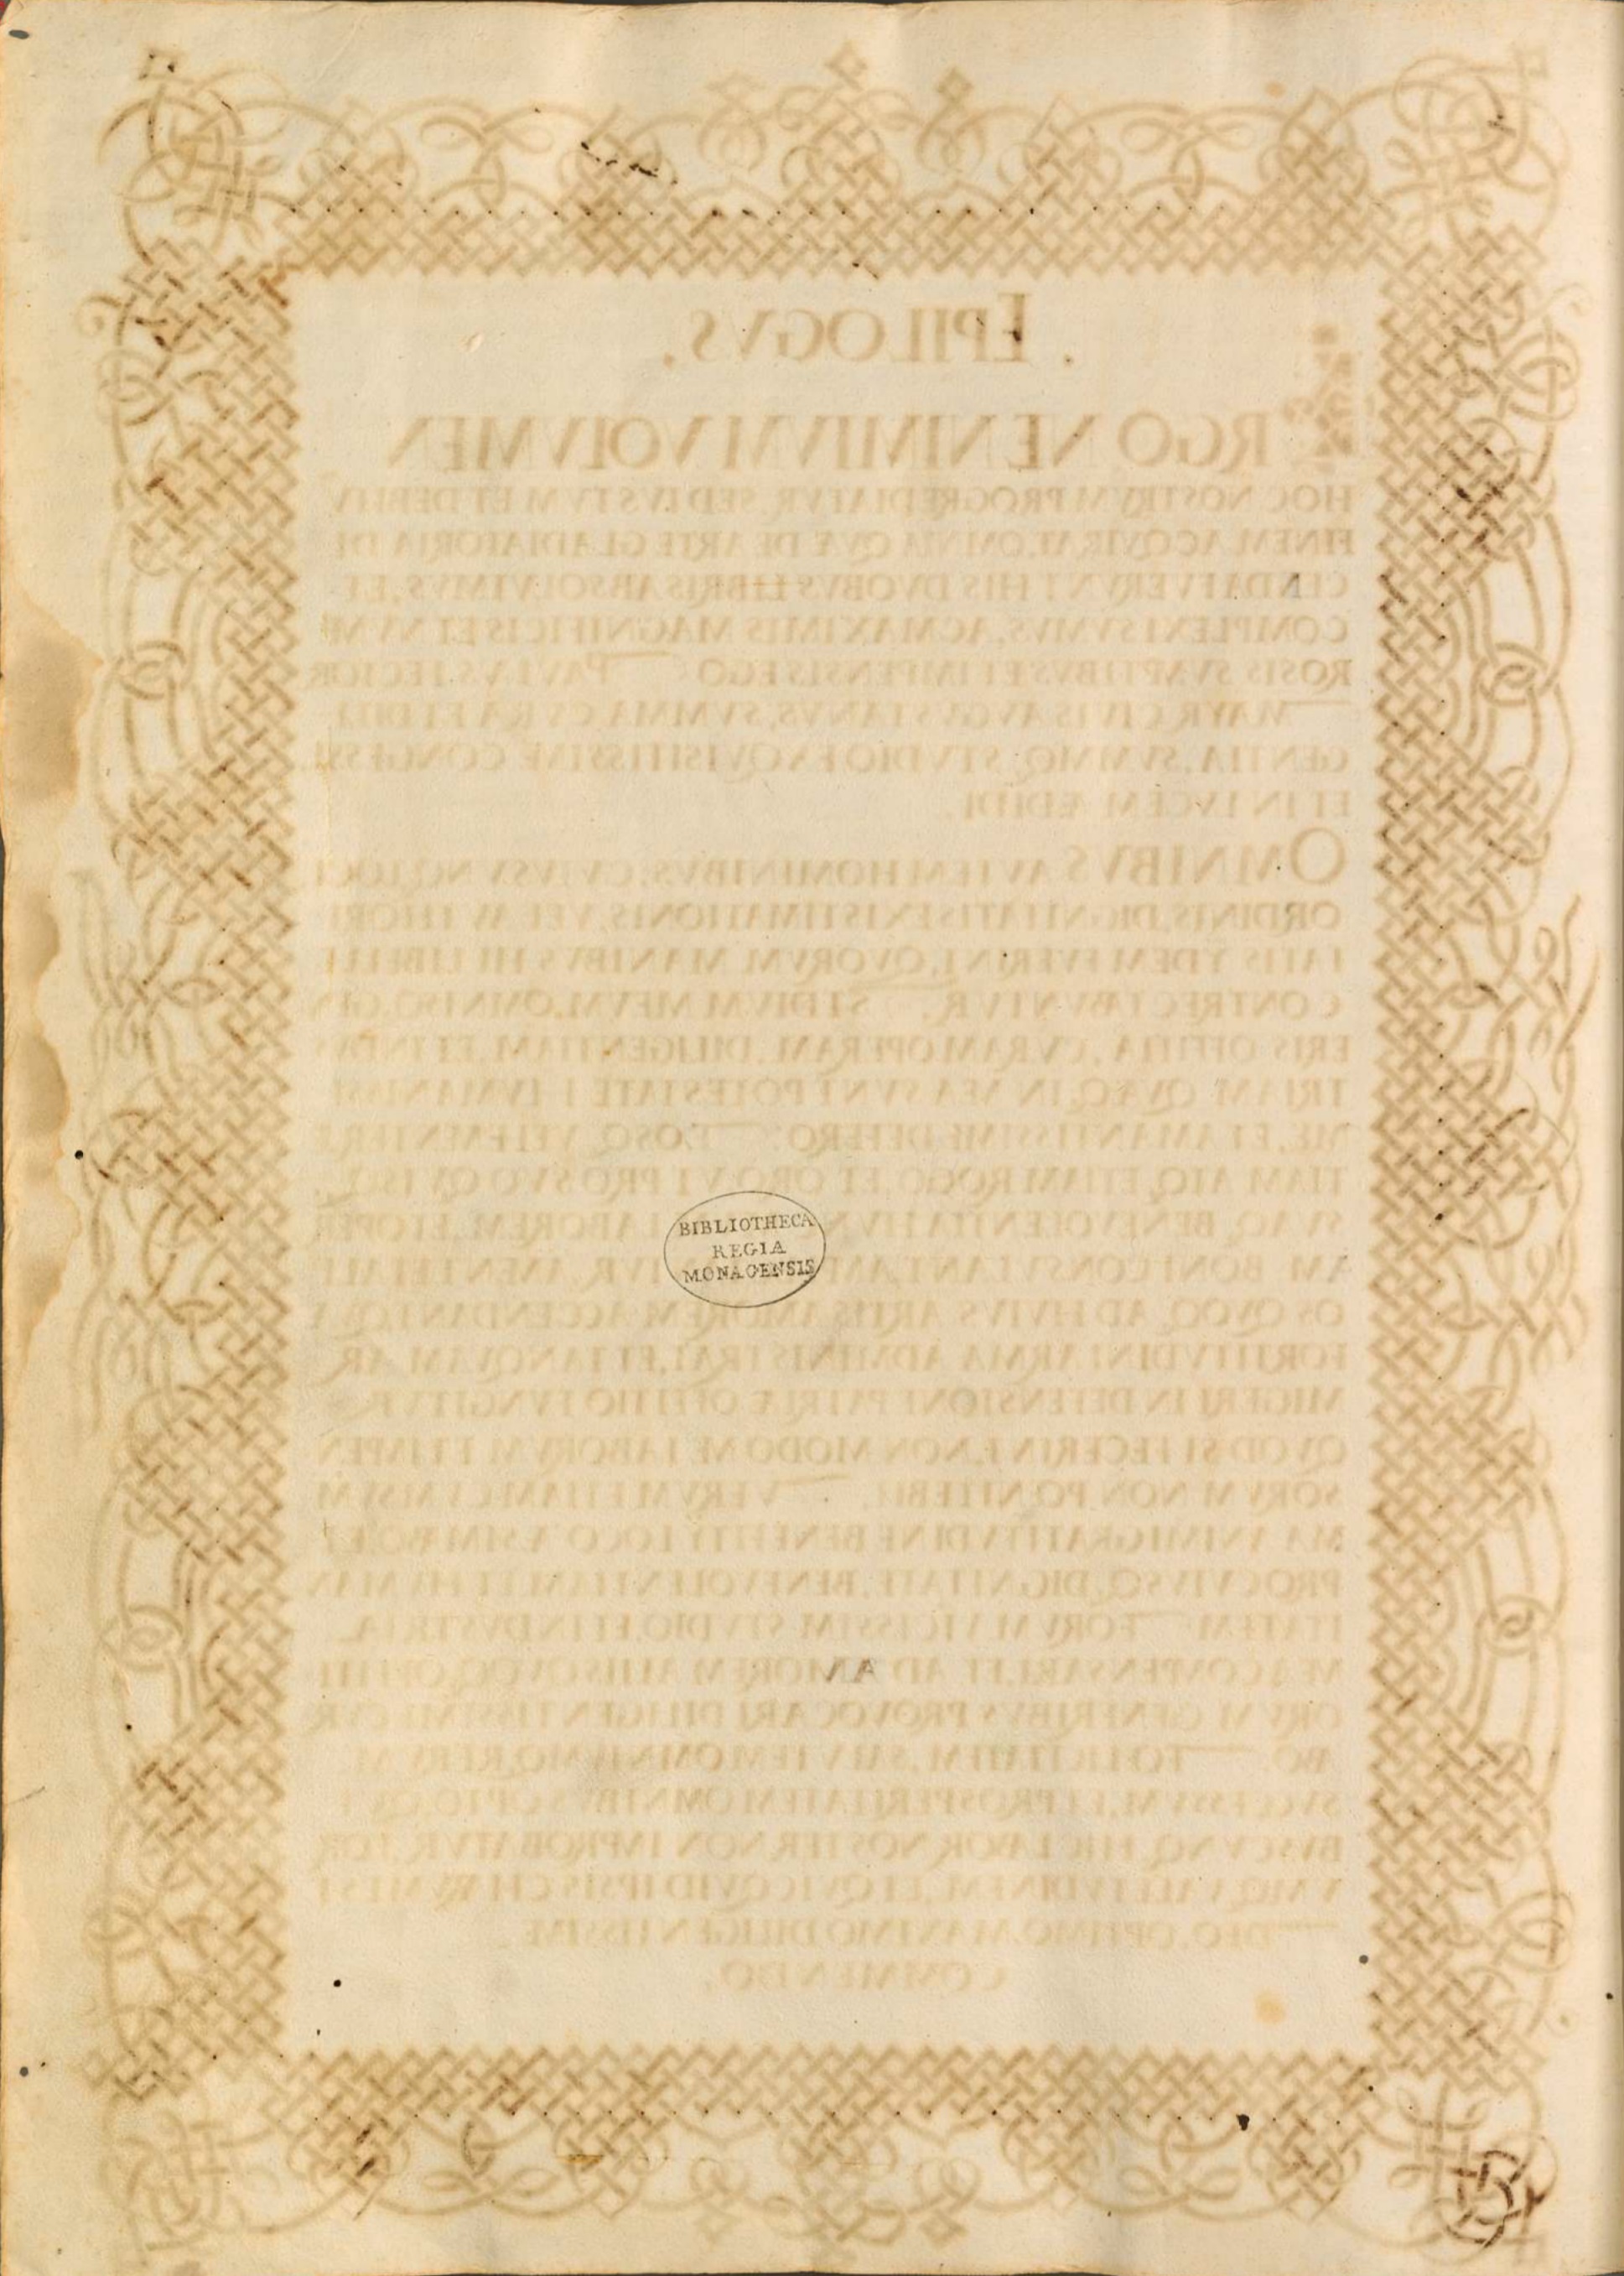 . EPILOGVS .
ERGO NE NIMIVM VOLVMEN
HOC NOSTRVM PROGREDIATVR, SED IVSTVM ET DEBITV
FINEM ACQVIRAT, OMNIA QVÆ DE ARTE GLADIATORIA DI
CENDA FVERVNT HIS DVOBVS LIBRIS ABSOLVIMVS, ET
COMPLEXI SVMVS, AC MAXIMIS MAGNIFICIS ET NVME
ROSIS SVMPTIBVS ET IMPENSIS EGO PAVLVS HECTOR
MAYR CIVIS AVGVSTANVS, SVMMA CVRA ET DILI
GENTIA, SVMMOQ, STVDIO EXQVISITISSIME CONGESSI,
ET IN LVCEM ÆDIDI.
OMNIBVS AVTEM HOMINIBVS, CVIVSVNQ, LOCI
ORDINIS, DIGNITATIS EXISTIMATIONIS, VEL AVTHORI
TATIS YDEM FVERINT, QVORVM MANIBVS HI LIBELLI
CONTRECTABVNTVR, STVDIVM MEVM, OMNISQ, GEN
ERIS OFFITIA, CVRAM OPERAM, DILIGENTIAM, ET INDVS
TRIAM QVÆQ, IN MEA SVNT POTESTATE HVMANISSI
ME, ET AMANTISSIME DEFERO. EOSQ, VEHEMENTER E
TIAM ATQ, ETIAM ROGO, ET ORO VT PRO SVO QVISQ,
SVAQ, BENEVOLENTIA LABOREM, ET OPER
AM
OS QVOQ, AD HVIVS ARTIS AMOREM ACCENDANT, QV
FORTITVDINI ARMA ADMINISTRAT, ET TANQVAM AR
MIGERI IN DEFENSIONE PATRIÆ OFFITIO FVNGITVR
QVOD SI FECERINT, NON MODO ME LABORVM ET IMPEN
SORVM NON POENITEBIT. VERVM ETIAM CVM SVM
MA ANIMI GRATITVDINE BENEFITII LOCO ET
PRO CVIVSQ, DIGNITATE, BENEVOLENTIAM, ET HVMAN
ITATEM EORVM VICISSIM STVDIO, ET INDVSTRIA
MEA COMPENSARE, ET AD AMOREM ALIIS QVOQ, OFFITI
ORVM GENERIBVS PROVOCARI DILIGENTISSIME CVR
ABO. FOELICITATEM, SALVTEM OMNIVMQ, RERVM
SVCCESSVM, ET PROSPERITATEM OMNIBVS OPTO, QVI
BVSCVNQ, HIC LABOR NOSTER NON IMPROBATVR,
VALETVDINEM, ET QVICQVID IPSIS CHARVM EST
DEO, OPTIMO, MAXIMO DILIGENTISSIME
COMMENDO.
BIBLIOTHECA
REGIA
MONACENSIS